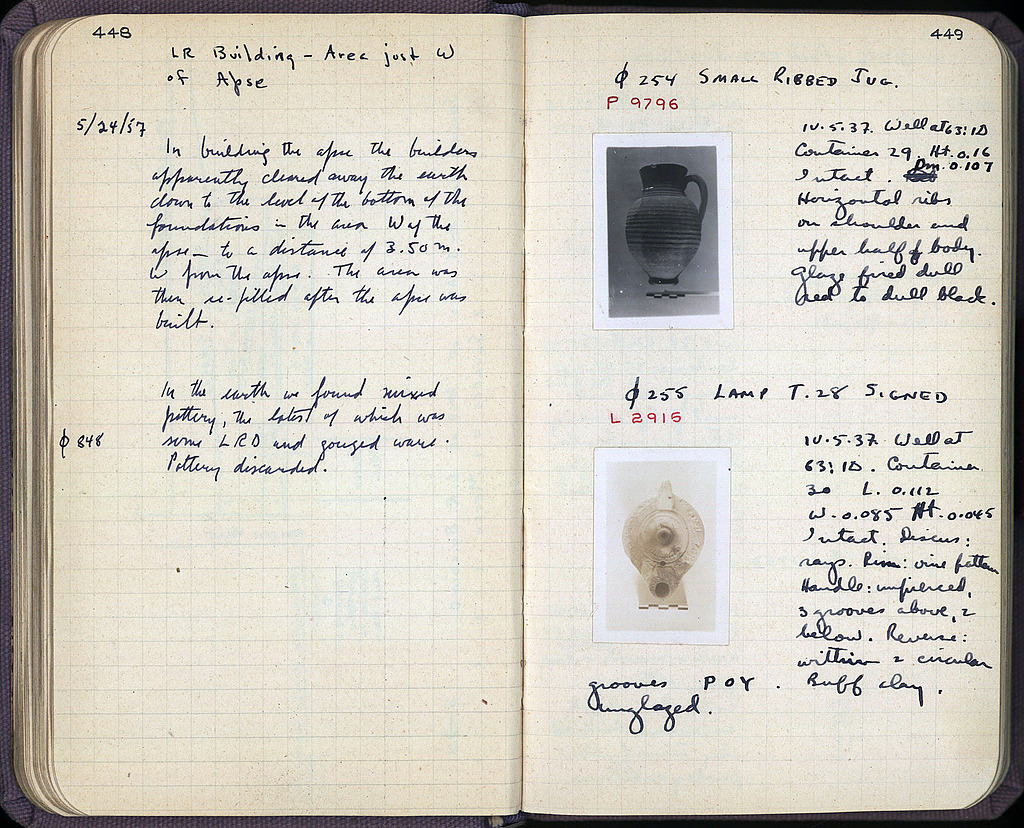 448
LR Building – Area just W
of Apse
5/24/37
In building the apse the builders
apparently cleared away the earth
down to the level of the bottom of the
foundations in the area W of the
apse – to a distance of 3.50 m.
W from the apse. The area was
then re-filled after the apse was
built.
In the earth we found mixed
pottery, the latest of which was
ϕ 848 some LRD and gouged ware.
Pottery discarded.
449
ϕ 254 SMALL RIBBED JUG.
P 9796
10.5.37. Well at 63:1D
Container 29 Ht. 0.16
Intact. Dm. 0.107
Horizontal ribs
on shoulder and
upper half of body.
Glaze fired dull
red to dull black.
ϕ 255 LAMP T.28 SIGNED
L 2915
10.5.37. Well at
63:1D. Container
30 L. 0.112
W. 0.085 Ht. 0.045
Intact. Discus:
rays. Rim: vine pattern
Handle: unpierced,
3 grooves above, 2
below. Reverse:
within 2 circular
grooves ΡΟΥ. Buff clay,
unglazed.